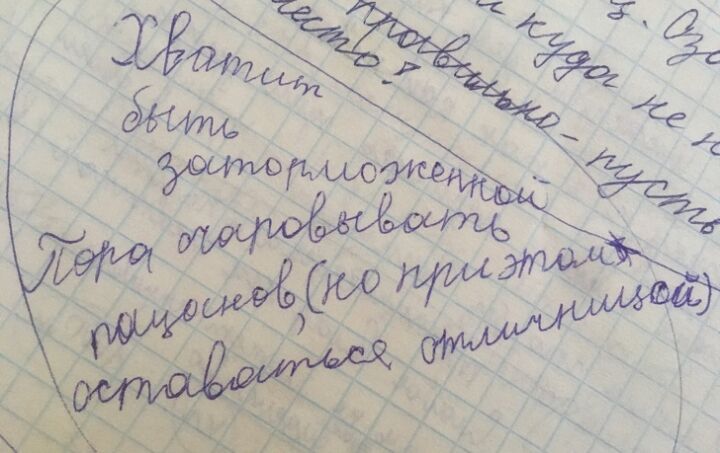 ц.
и куда не н
правильно - пусть
место?
Хватит
быть
заторможенной
Пора очаровывать
пацанов, (но при этом
оставаться отличницей)